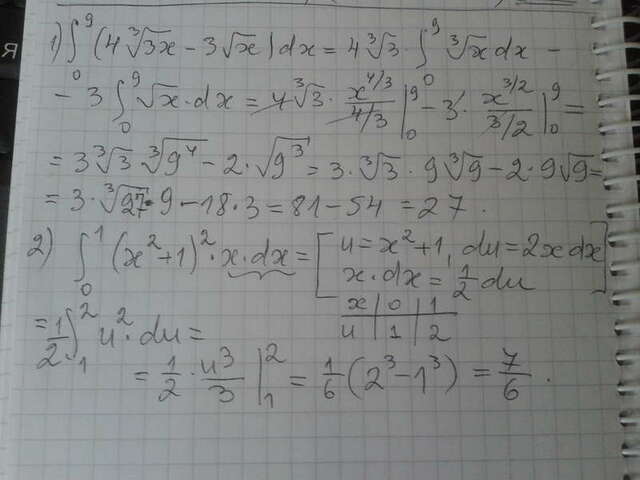 1) ∫₀⁹ (4∛3x − 3√x) dx = 4∛3 · ∫₀⁹ ∛x dx −
− 3 ∫₀⁹ √x · dx = 4∛3 · x^(4/3) / (4/3) |₀⁹ − 3 · x^(3/2) / (3/2) |₀⁹ =
= 3∛3 · ∛9⁴ − 2 · √9³ = 3 · ∛3 · 9∛9 − 2 · 9√9 =
= 3 · ∛27 · 9 − 18 · 3 = 81 − 54 = 27 .
2) ∫₀¹ (x² + 1)² · x · dx = [ u = x² + 1, du = 2x dx
x · dx = 1/2 du ]
x | 0 | 1
u | 1 | 2
= 1/2 ∫₁² u² · du =
= 1/2 · u³/3 |₁² = 1/6 (2³ − 1³) = 7/6 .